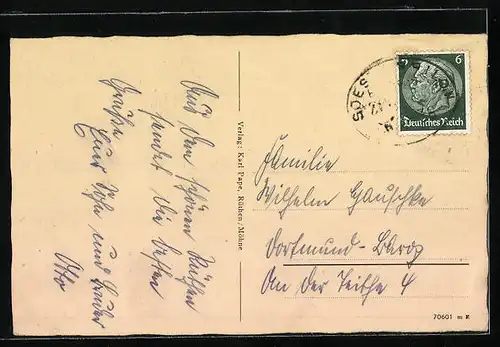 Aus dem schönen Rüthen
sendet die besten
Grüße
Euer Sohn und Bruder
Otto
Verlag: Karl Pape, Rüthen/Möhne
6
Deutsches Reich
SOEST
Familie
Wilhelm Gauschke
Dortmund-Barop
An der Teithe 4
70601 m R